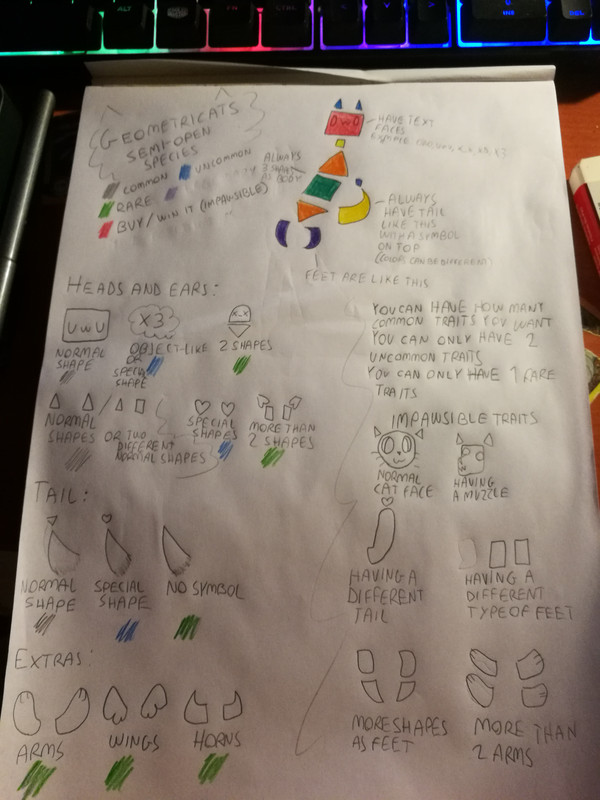 ALT
INS
DEL
GEOMETRICATS
SEMI-OPEN
SPECIES
COMMON
UNCOMMON
RARE
BUY/WIN IT (IMPAWSIBLE)
OWO
HAVE TEXT
FACES
ALWAYS
3 SHAPES
AS BODY
ALWAYS
HAVE TAIL
LIKE THIS
WITH A SYMBOL
ON TOP
(COLOR CAN BE DIFFERENT)
FEET ARE LIKE THIS
HEADS AND EARS:
UWU
NORMAL
SHAPE
X3
OBJECT-LIKE
OR
SPECIAL
SHAPE
X_X
2 SHAPES
NORMAL
SHAPES
OR TWO
DIFFERENT
NORMAL SHAPES
SPECIAL
SHAPES
MORE THAN
2 SHAPES
TAIL:
NORMAL
SHAPE
SPECIAL
SHAPE
NO SYMBOL
EXTRAS:
ARMS
WINGS
HORNS
YOU CAN HAVE HOW MANY
COMMON TRAITS YOU WANT
YOU CAN ONLY HAVE 2
UNCOMMON TRAITS
YOU CAN ONLY HAVE 1 RARE
TRAITS
IMPAWSIBLE TRAITS
NORMAL
CAT FACE
HAVING
A MUZZLE
HAVING A
DIFFERENT
TAIL
HAVING A
DIFFERENT
TYPE OF FEET
MORE SHAPES
AS FEET
MORE THAN
2 ARMS